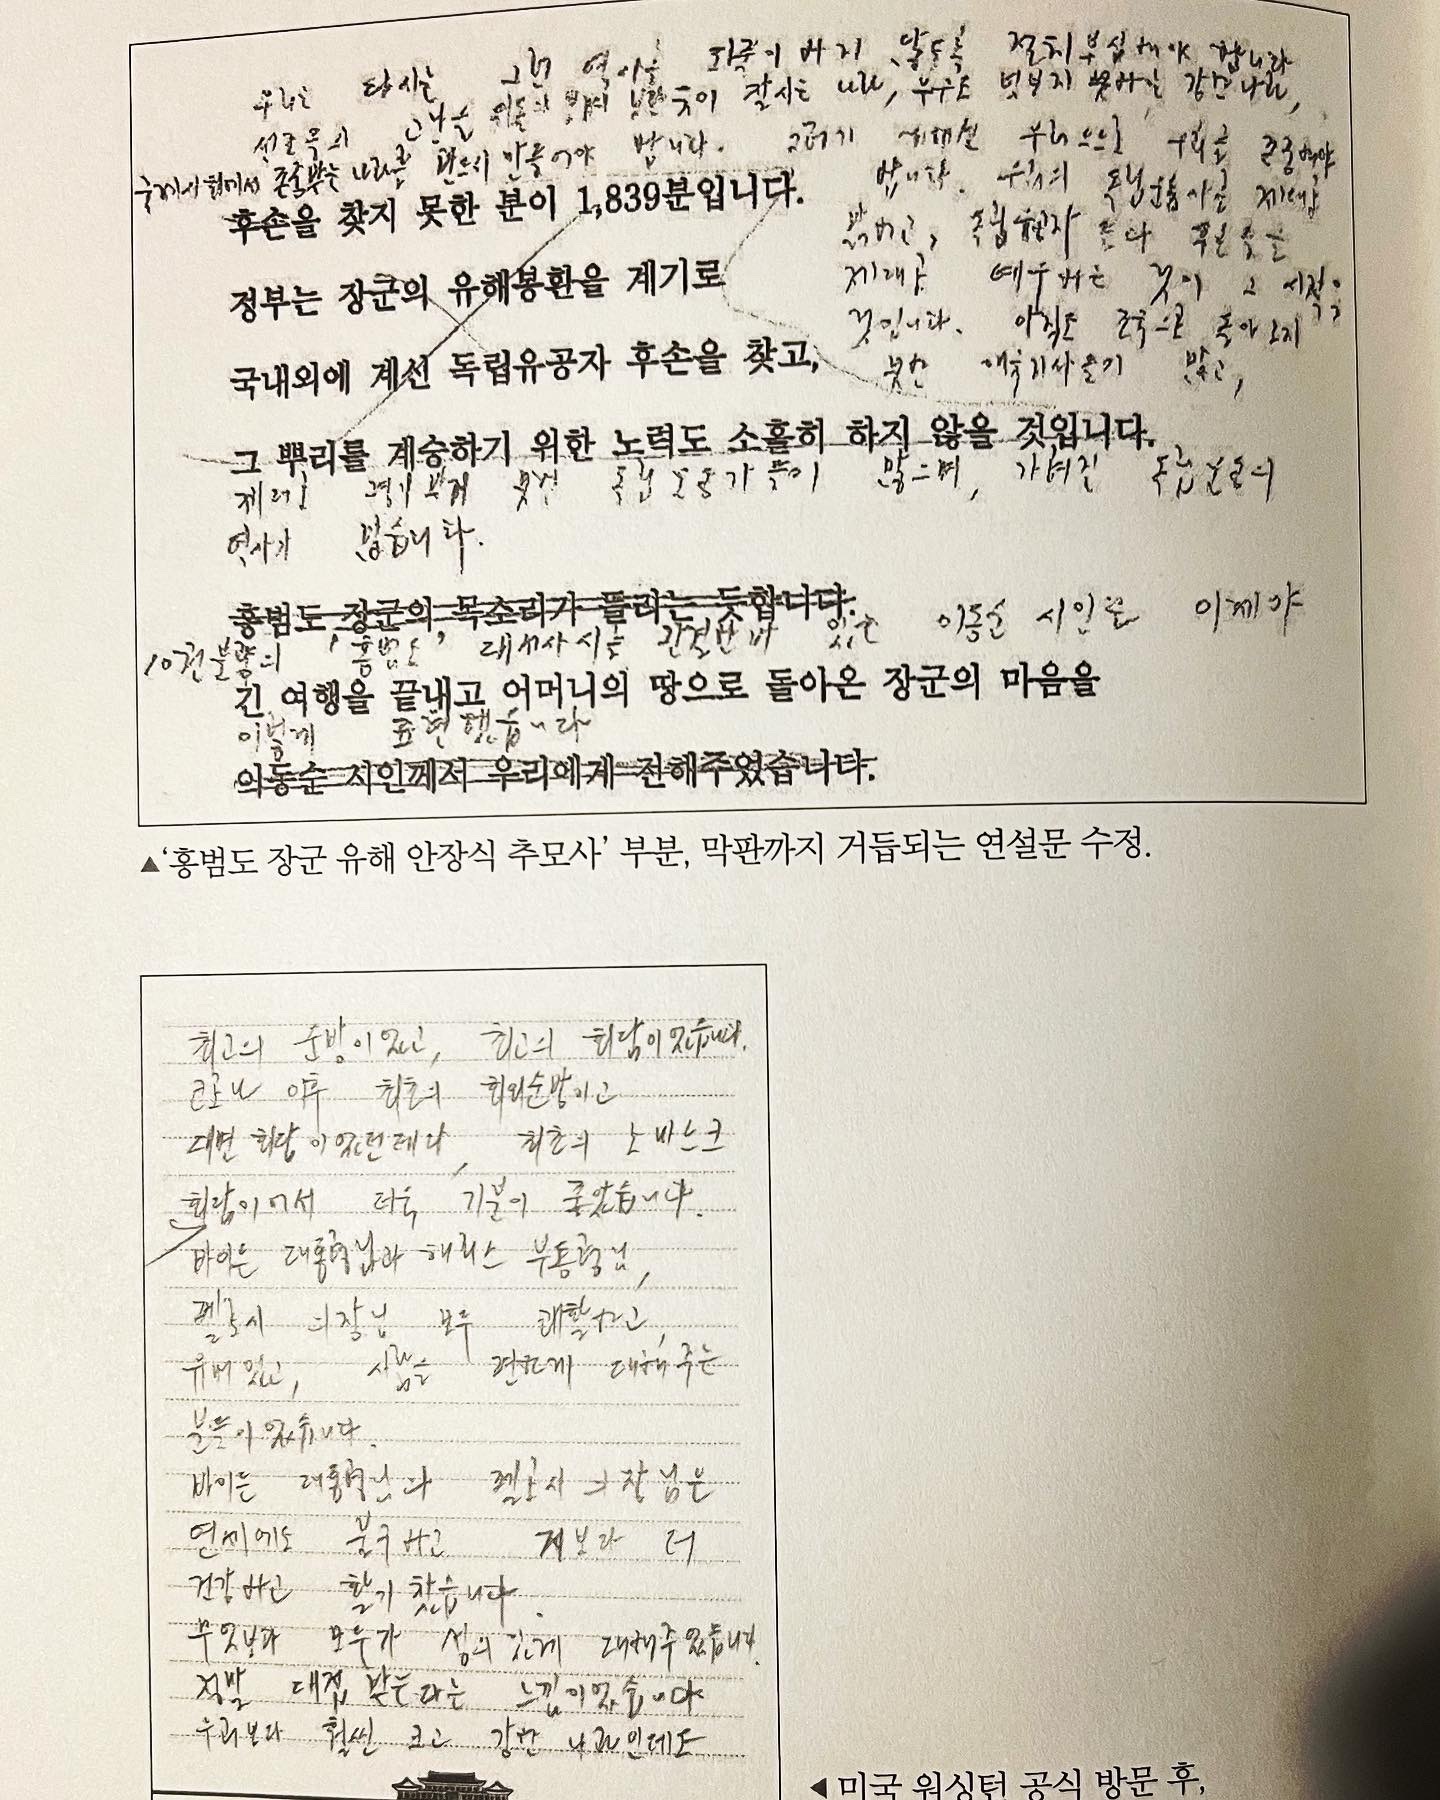 우리는 다시는 그런 역사를 되풀이 하지 않도록 절치부심해야 합니다
선조들의 고난을 뒤돌아보며 보란듯이 잘사는 나라, 누구도 넘보지 못하는 강한나라,
국제사회에서 존중받는 나라를 반드시 만들어야 합니다. 그러기 위해선 우리 스스로 우리를 존중해야
합니다. 우리의 독립운동사를 제대로
밝히고, 독립유공자들과 후손들을
제대로 예우하는 것이 그 시작일
것입니다. 아직도 조국으로 돌아오지
못한 애국지사들이 많고,
후손을 찾지 못한 분이 1,839분입니다.
정부는 장군의 유해봉환을 계기로
국내외에 계선 독립유공자 후손을 찾고,
그 뿌리를 계승하기 위한 노력도 소홀히 하지 않을 것입니다.
제대로 평가받지 못한 독립운동가들이 많으며, 가려진 독립운동의
역사가 많습니다.
홍범도 장군의 목소리가 들리는 듯합니다.
10권 분량의 '홍범도' 대서사시를 완결한바 있는 이동순 시인은 이제야
긴 여행을 끝내고 어머니의 땅으로 돌아온 장군의 마음을
이렇게 표현했습니다
이동순 시인께서 우리에게 전해주었습니다.
▲'홍범도 장군 유해 안장식 추모사' 부분, 막판까지 거듭되는 연설문 수정.
최고의 순방이었고, 최고의 회담이었습니다.
코로나 이후 최초의 해외순방이고
대면 회담이었던데다, 최초의 노마스크
회담이어서 더욱 기분이 좋았습니다.
바이든 대통령님과 해리스 부통령님,
펠로시 의장님 모두 쾌활하고,
유머있고, 사람을 편하게 대해주는
분들이었습니다.
바이든 대통령님과 펠로시 의장님은
연세에도 불구하고 저보다 더
건강하고 활기찼습니다.
무엇보다 모두가 성의있게 대해주었습니다.
정말 대접받는다는 느낌이었습니다
우리보다 훨씬 크고 강한 나라인데도
◀미국 워싱턴 공식 방문 후,